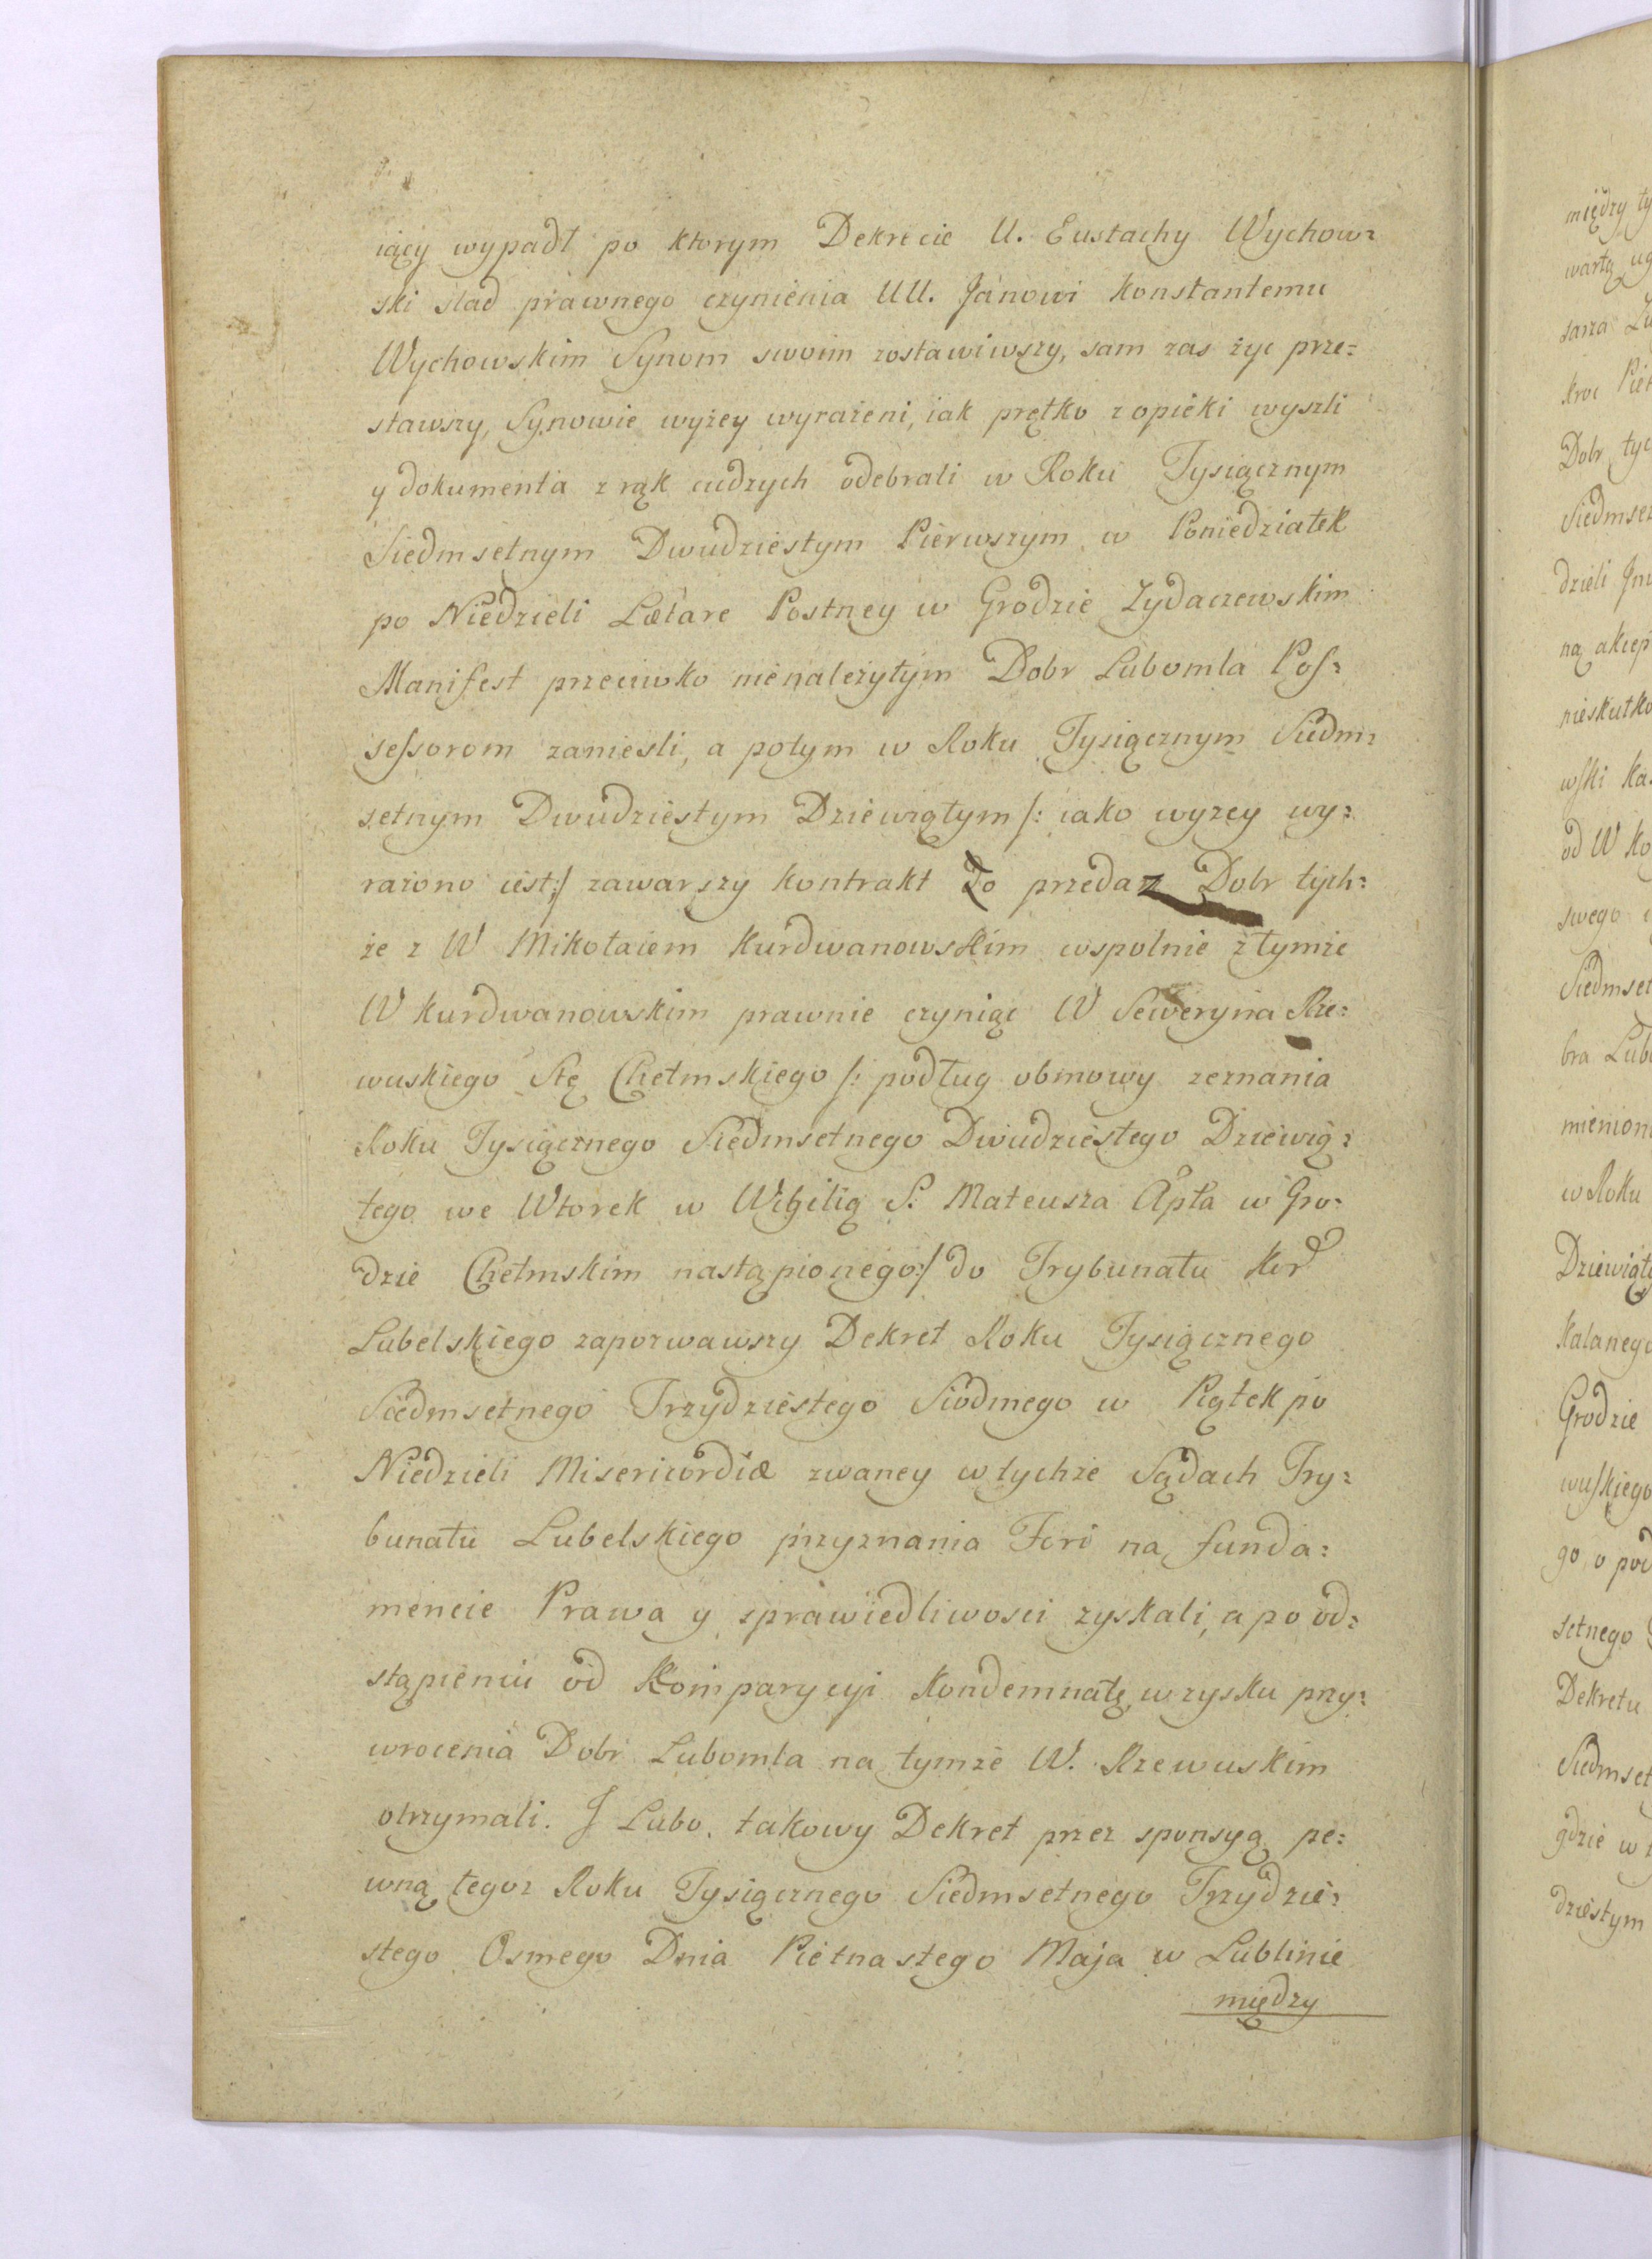 iący wypadł po ktorym Dekrecie U. Eustachy Wychow=
ski slad prawnego czynienia UU. Janowi Konstantemu
Wychowskim Synom swoim zostawiwszy, sam zas życ prze=
stawszy, Synowie wyżey wyrażeni, iak prętko z opieki wyszli
y dokumenta z rąk cudzych odebrali w Roku Tysiącznym
Siedmsetnym Dwudziestym Pierwszym w Poniedziałek
po Niedzieli Lætare Postney w Grodzie Zydaczewskim
Manifest przeciwko nienależytym Dobr Lubomla Pos=
sessorom zaniesli, a potym w Roku Tysiącznym Siedm=
setnym Dwudziestym Dziewiątym /: iako wyzey wy=
rażono iest :/ zawarszy Kontrakt do przedaz Dobr tych=
że z W Mikołaiem Kurdwanowskim wspolnie z tymże
W Kurdwanowskim prawnie czyniąc W Seweryna Rze=
wuskiego Stę Chełmskiego /: podług obmowy zeznania
Roku Tysiącznego Siedmsetnego Dwudziestego Dziewią=
tego we Wtorek w Wigilią S. Mateusza Apła w Gro=
dzie Chełmskim nastąpionego :/ do Trybunału Kor
Lubelskiego zapozwawszy Dekret Roku Tysiącznego
Siedmsetnego Trzydziestego Siodmego w Piątek po
Niedzieli Misericordiæ zwaney w tychże Sądach Try=
bunału Lubelskiego przyznania Fori na funda=
mencie Prawa y sprawiedliwosci zyskali, a po od=
stąpieniu od Komparycyi Kondemnatę w zysku przy=
wrocenia Dobr Lubomla na tymże W. Rzewuskim
otrzymali. J Lubo takowy Dekret przez sponsyą pe=
wną tegoz Roku Tysiącznego Siedmsetnego Trzydzie=
stego Osmego Dnia Piętnastego Maja w Lublinie
między
między ty
wartą ug
sarza
kroc Pięt
Dobr tyc
Siedmset
dzieli
ną akcep
nieskutko
wski Ka
od W Ko
swego
Siedmset
bra Lub
mienion
w Roku
Dziewiąt
Kalanego
Grodzie
wuskiego
go o pod
setnego
Dekretu
Siedmset
gdzie w
dziestym